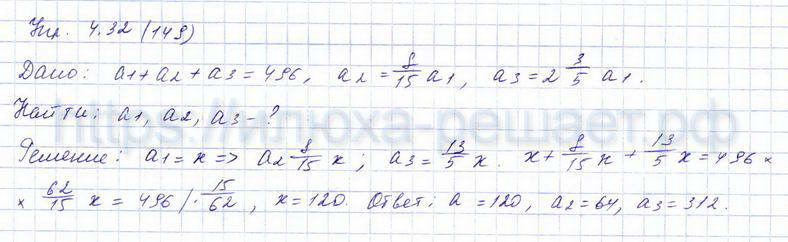 Упр. 4.32 (149)
Дано: a1+a2+a3=496, a2=8/15 a1, a3=2 3/5 a1.
Найти: a1, a2, a3-?
https://илюха-решает.рф
Решение: a1=x=> a2 8/15 x; a3=13/5 x. x+8/15 x+13/5 x=496 ×
× 62/15 x=496/·15/62, x=120. Ответ: a=120, a2=64, a3=312.